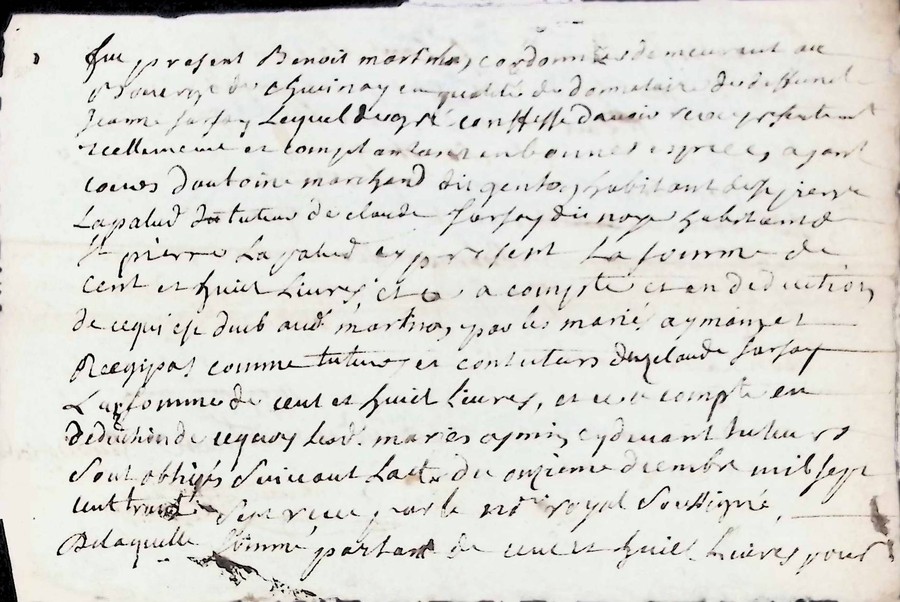 fut present Benoit martinon cordonnier demeurant au
de Chuinay en qualité de donnataire de deffunct
Jeanne farfay Lequel de gré confesse davoir receu presentement
reellement et comptant en bonnes espece, ayant
coours dantoine marchand dit habitant de St pierre
Lapalud tuteur de claude farfay dit noye habitant de
St pierre Lapalud et present La somme de
cent et huict Livres et ce a compte et en deduction
de ce qui est dub aud. martinon par les mariés aymon et
comme tuteurs et contuteurs de claude farfay
La somme de cent et huict livres, et ce a compte en
deduction de ce quoy Lesd. mariés cy devant tuteurs
sont obligés suivant Lacte du onzieme decembre mil sept
cent trante receu par le no.re royal soussigné,
De laquelle somme partant de cent et huict livres pour